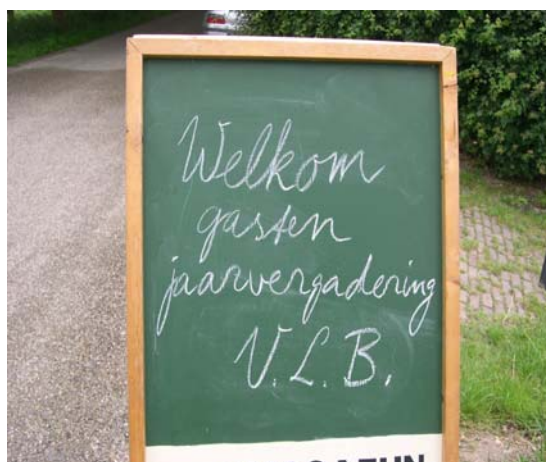 Welkom
gasten
jaarvergadering
V.L.B.